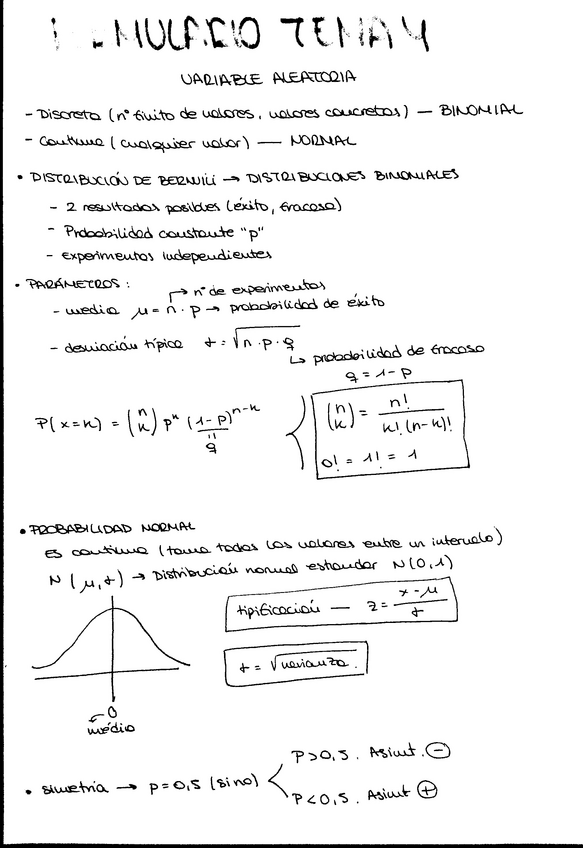 TEMA 4
VARIABLE ALEATORIA
- Discreta (nº finito de valores, valores concretos) — BINOMIAL
- Continua (cualquier valor) — NORMAL
• DISTRIBUCIÓN DE BERNUILI → DISTRIBUCIONES BINOMIALES
- 2 resultados posibles (éxito, fracaso)
- Probabilidad constante "p"
- experimentos independientes
• PARÁMETROS:
→ nº de experimentos
- media μ = n · p → probabilidad de éxito
- desviación típica σ = √n · p · q
↳ probabilidad de fracaso
q = 1 - p
P(x=k) = (n k) p^k (1-p)^n-k
" q
(n k) = n! / k!(n-k)!
0! = 1! = 1
• PROBABILIDAD NORMAL
Es continua (toma todos los valores entre un intervalo)
N(μ,σ) → Distribución normal estandar N(0,1)
tipificación — z = x - μ / σ
σ = √varianza.
0
← médio
• simetría → p = 0,5 (sino)
P>0,5. Asimt. ⊖
P<0,5. Asimt ⊕